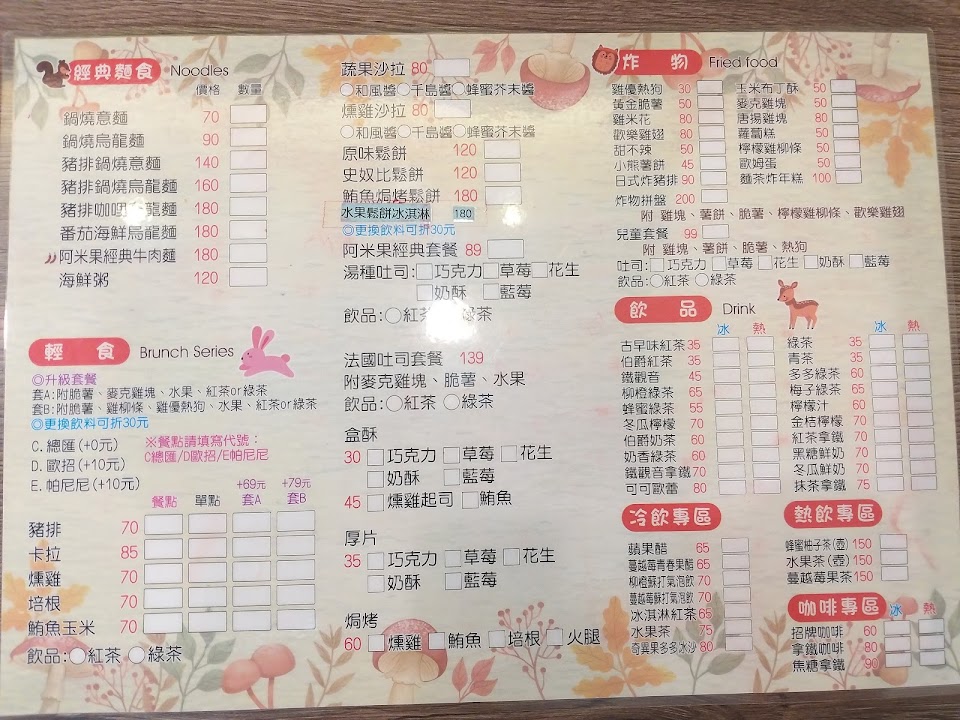 經典麵食 Noodles
價格 數量
鍋燒意麵 70
鍋燒烏龍麵 90
豬排鍋燒意麵 140
豬排鍋燒烏龍麵 160
豬排咖哩烏龍麵 180
番茄海鮮烏龍麵 180
阿米果經典牛肉麵 180
海鮮粥 120
輕食 Brunch Series
◎升級套餐
套A:附脆薯、麥克雞塊、水果、紅茶or綠茶
套B:附脆薯、雞柳條、雞優熱狗、水果、紅茶or綠茶
◎更換飲料可折30元
C.總匯(+0元)
D.歐招(+10元)
E.帕尼尼(+10元)
※餐點請填寫代號：
C總匯/D歐招/E帕尼尼
餐點 單點 +69元套A +79元套B
豬排 70
卡拉 85
燻雞 70
培根 70
鮪魚玉米 70
飲品:○紅茶 ○綠茶
蔬果沙拉 80
○和風醬○千島醬○蜂蜜芥末醬
燻雞沙拉 80
○和風醬○千島醬○蜂蜜芥末醬
原味鬆餅 120
史奴比鬆餅 120
鮪魚焗烤鬆餅 180
水果鬆餅冰淇淋 180
◎更換飲料可折30元
阿米果經典套餐 89
湯種吐司:□巧克力□草莓□花生
□奶酥 □藍莓
飲品:○紅茶 ○綠茶
法國吐司套餐 139
附麥克雞塊、脆薯、水果
飲品:○紅茶 ○綠茶
盒酥
30 □巧克力 □草莓 □花生
□奶酥 □藍莓
45 □燻雞起司 □鮪魚
厚片
35 □巧克力 □草莓 □花生
□奶酥 □藍莓
焗烤
60 □燻雞 □鮪魚 □培根 □火腿
炸物 Fried food
雞優熱狗 30
黃金脆薯 50
雞米花 80
歡樂雞翅 80
甜不辣 50
小熊薯餅 45
日式炸豬排 90
玉米布丁酥 50
麥克雞塊 50
唐揚雞塊 80
蘿蔔糕 50
檸檬雞柳條 50
歐姆蛋 50
麵茶炸年糕 100
炸物拼盤 200
附 雞塊、薯餅、脆薯、檸檬雞柳條、歡樂雞翅
兒童套餐 99
附 雞塊、薯餅、脆薯、熱狗
吐司:□巧克力 □草莓 □花生 □奶酥 □藍莓
飲品:○紅茶 ○綠茶
飲品 Drink
冰 熱
古早味紅茶 35
伯爵紅茶 35
鐵觀音 45
柳橙綠茶 65
蜂蜜綠茶 55
冬瓜檸檬 70
伯爵奶茶 60
奶香綠茶 60
鐵觀音拿鐵 70
可可歐蕾 80
冰 熱
綠茶 35
青茶 35
多多綠茶 60
梅子綠茶 65
檸檬汁 60
金桔檸檬 70
紅茶拿鐵 70
黑糖鮮奶 70
冬瓜鮮奶 70
抹茶拿鐵 75
冷飲專區
蘋果醋 65
蔓越莓青春果醋 65
柳橙蘇打氣泡飲 70
蔓越莓蘇打氣泡飲 70
冰淇淋紅茶 65
水果茶 75
奇異果多多冰沙 80
熱飲專區
蜂蜜柚子茶(壺) 150
水果茶(壺) 150
蔓越莓果茶 150
咖啡專區 冰 熱
招牌咖啡 60
拿鐵咖啡 80
焦糖拿鐵 90